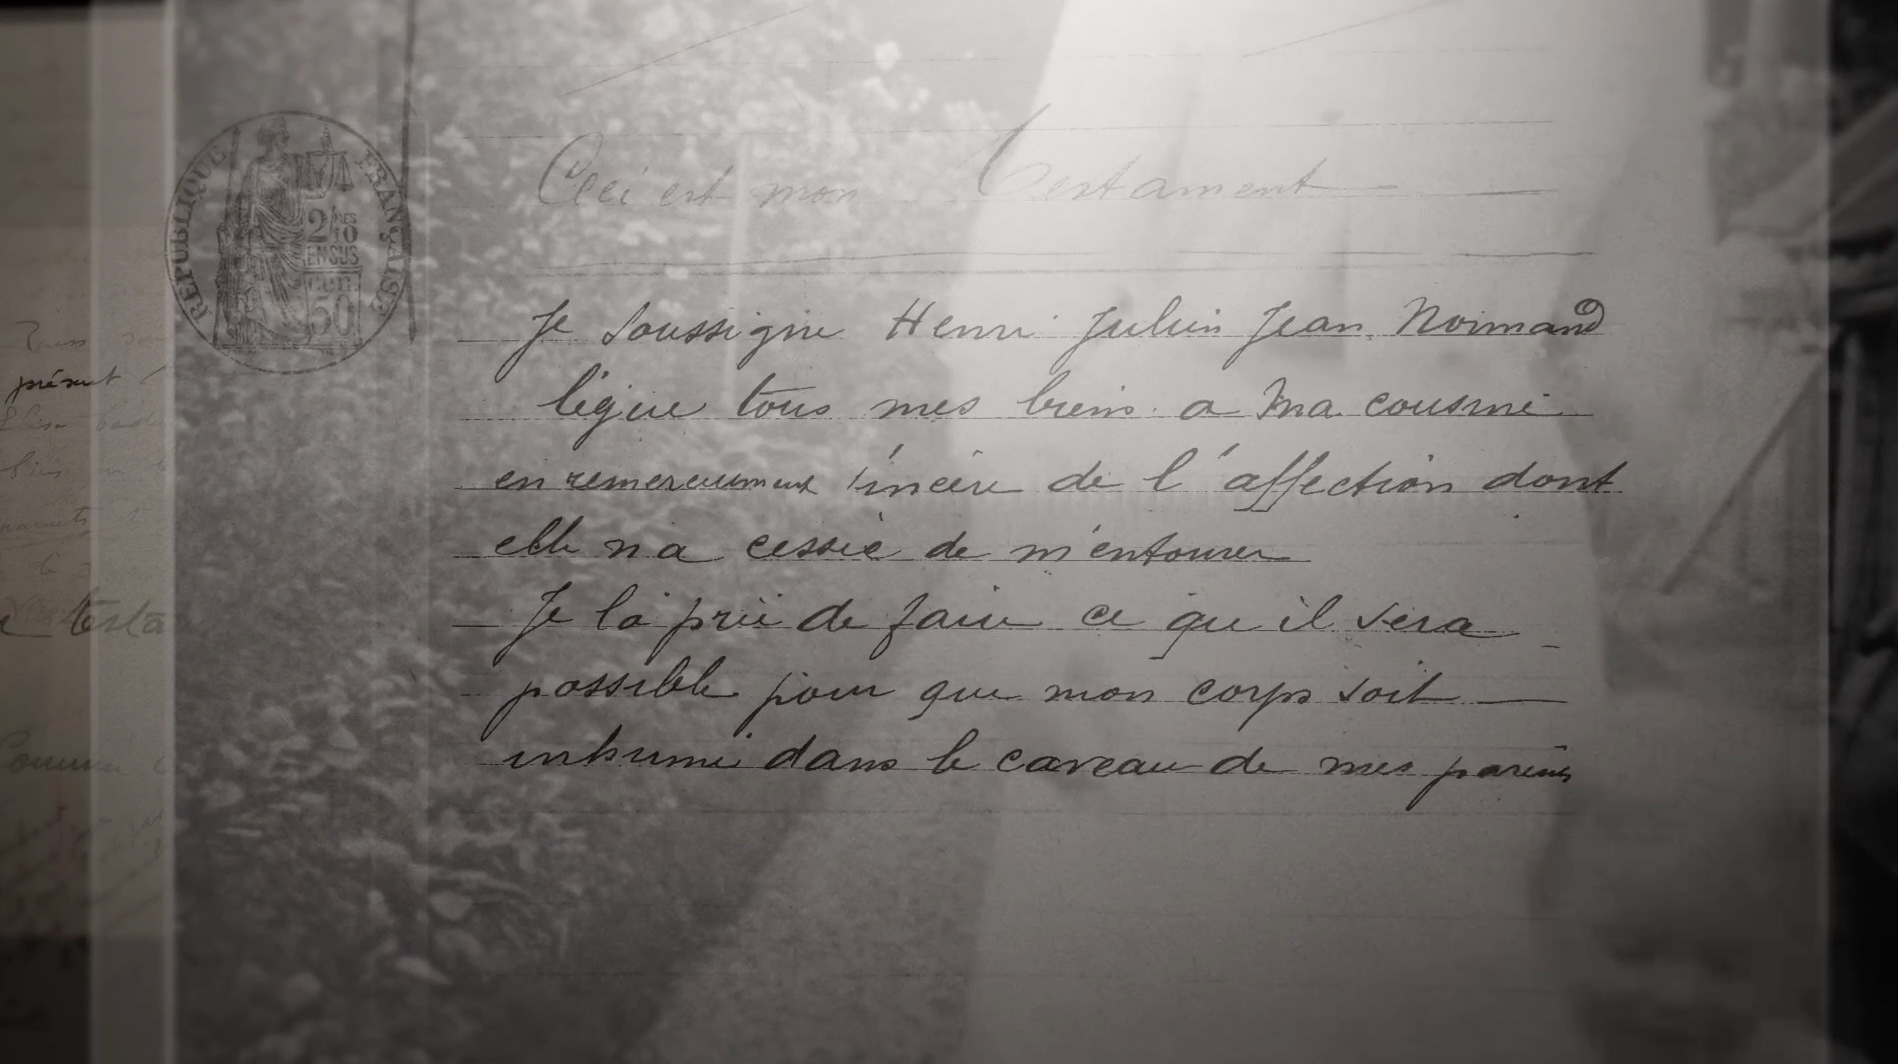 RÉPUBLIQUE FRANÇAISE
2/10 MES
EN SUS
50
Ceci est mon Testament
Je soussigné Henri Julien Jean Normand
lègue tous mes biens a ma cousine
en remerciement sincère de l'affection dont
elle n'a cessé de m'entourer
Je la prie de faire ce qu'il sera
possible pour que mon corps soit
inhumé dans le caveau de mes parents
présent
testa